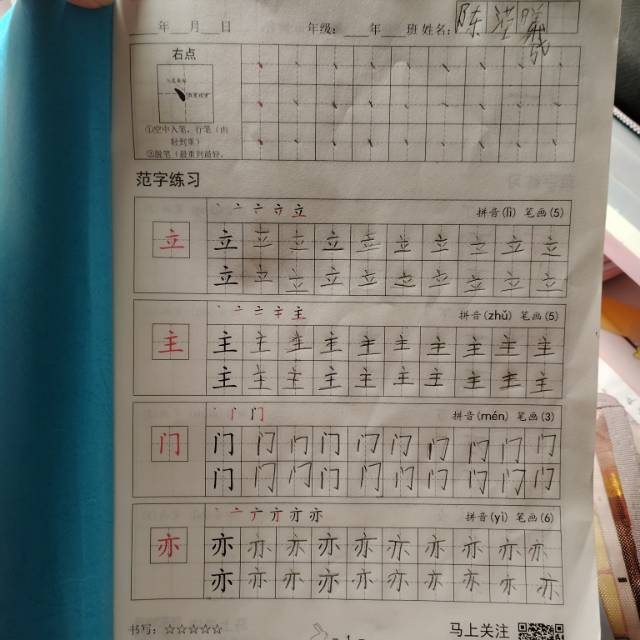 年 月 日 年级: 年 班 姓名: 陈滢曦
右点
①空中入笔,行笔(由
轻到重)
范字练习
立 拼音(lì) 笔画(5)
立 立 立 立 立 立 立 立 立 立
立 立 立 立 立 立 立 立 立 立
主 拼音(zhǔ) 笔画(5)
主 主 主 主 主 主 主 主 主 主
主 主 主 主 主 主 主 主 主 主
门 拼音(mén) 笔画(3)
门 门 门 门 门 门 门 门 门 门
门 门 门 门 门 门 门 门 门 门
亦 拼音(yì) 笔画(6)
亦 亦 亦 亦 亦 亦 亦 亦 亦 亦
亦 亦 亦 亦 亦 亦 亦 亦 亦 亦
书写: ☆☆☆☆☆ 马上关注